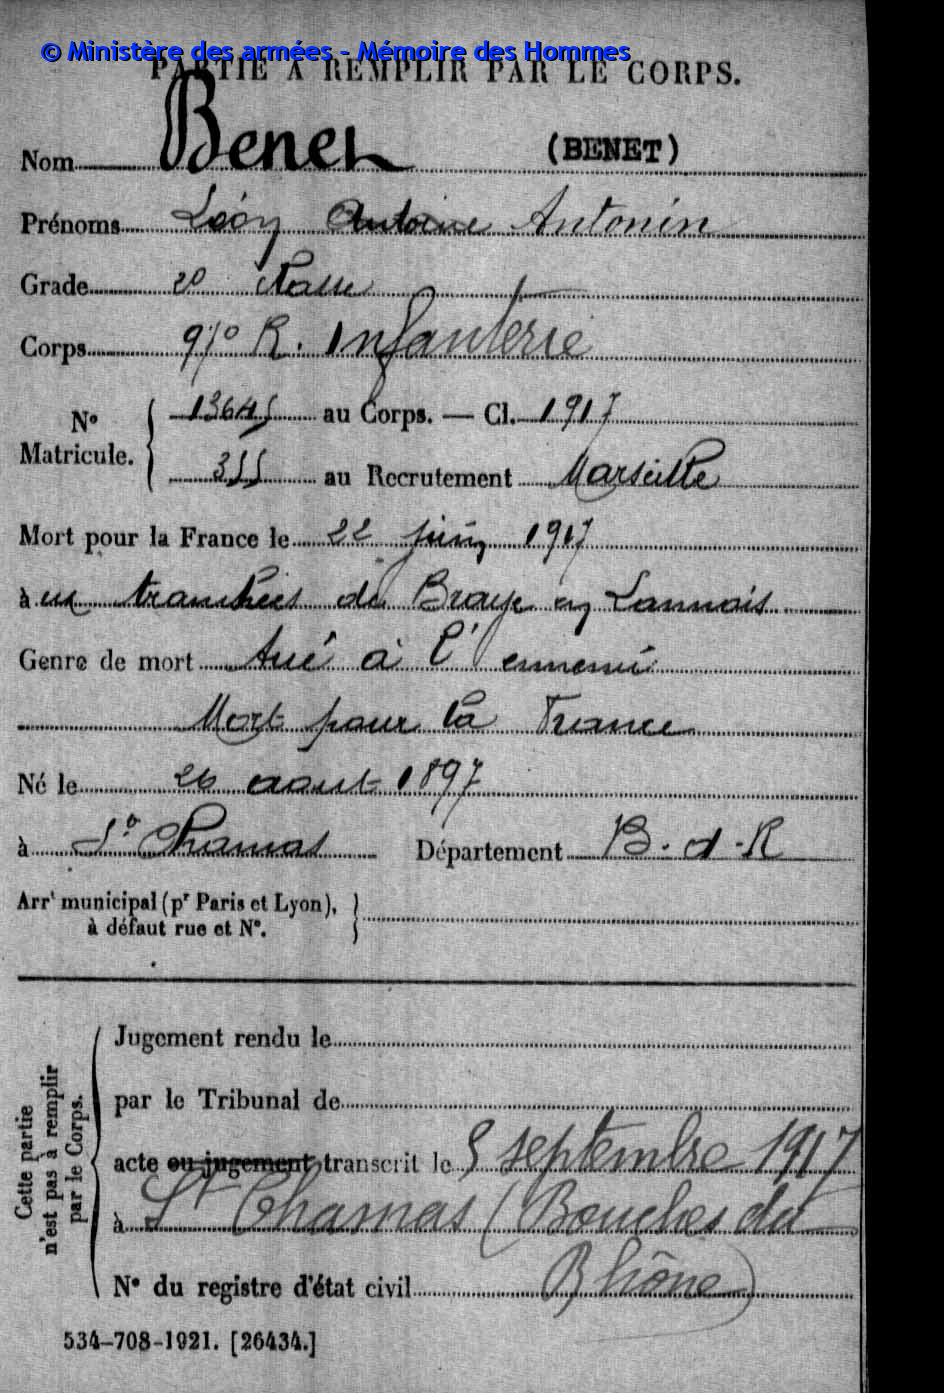 © Ministère des armées - Mémoire des Hommes
PARTIE À REMPLIR PAR LE CORPS.
Nom Benet (BENET)
Prénoms Léon Antoine Antonin
Grade 2e classe
Corps 97e R. Infanterie
N° Matricule. 13645 au Corps. — Cl. 1917
355 au Recrutement Marseille
Mort pour la France le 22 juin 1917
à ux tranchées de Braye en Lannois
Genre de mort tué à l'ennemi
Mort pour la France
Né le 26 aout 1897
à St Chamas Département B. d. R
Arrt municipal (pr Paris et Lyon),
à défaut rue et N°.
Cette partie
n'est pas à remplir
par le Corps.
Jugement rendu le
par le Tribunal de
acte ou jugement transcrit le 5 septembre 1917
à St Chamas (Bouches du
N° du registre d'état civil Rhône)
534-708-1921. [26434.]